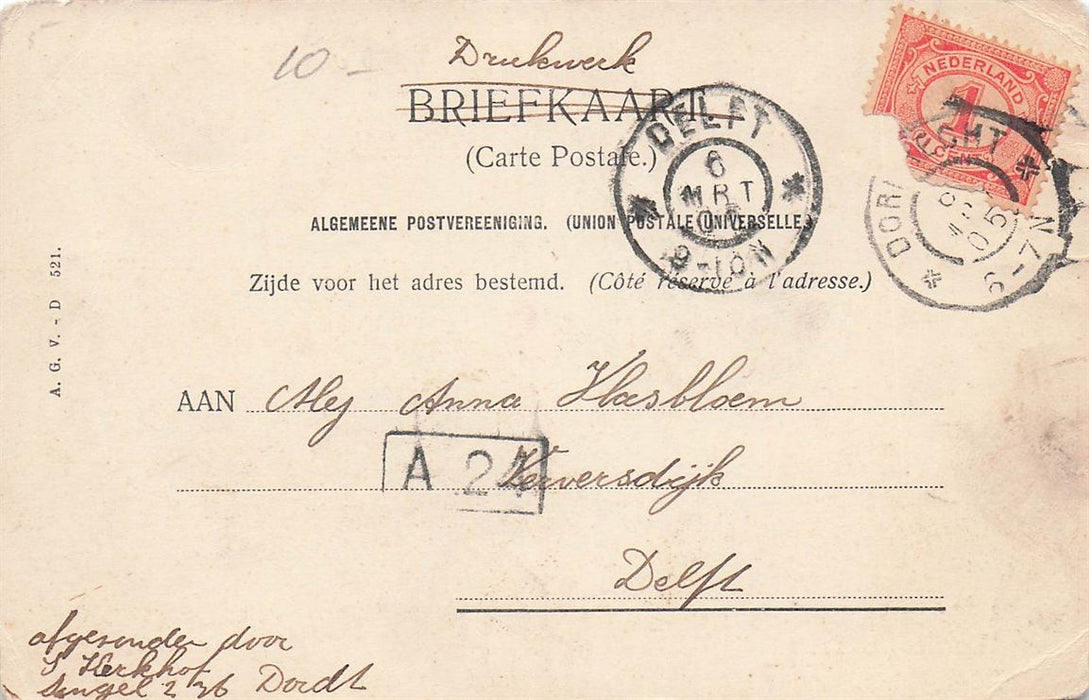 10 -
Drukwerk
BRIEFKAART
(Carte Postale.)
ALGEMEENE POSTVEREENIGING. (UNION POSTALE UNIVERSELLE)
Zijde voor het adres bestemd. (Côté réservé à l'adresse.)
NEDERLAND
1
DELFT
6
MRT
9-10N
DOR CHT
05
6-7N
A. G. V. - D 521.
AAN Mej Anna Hasbloem
A 24
Verwersdijk
Delft
afgezonden door
S Kerkhof
Singel 226 Dordt